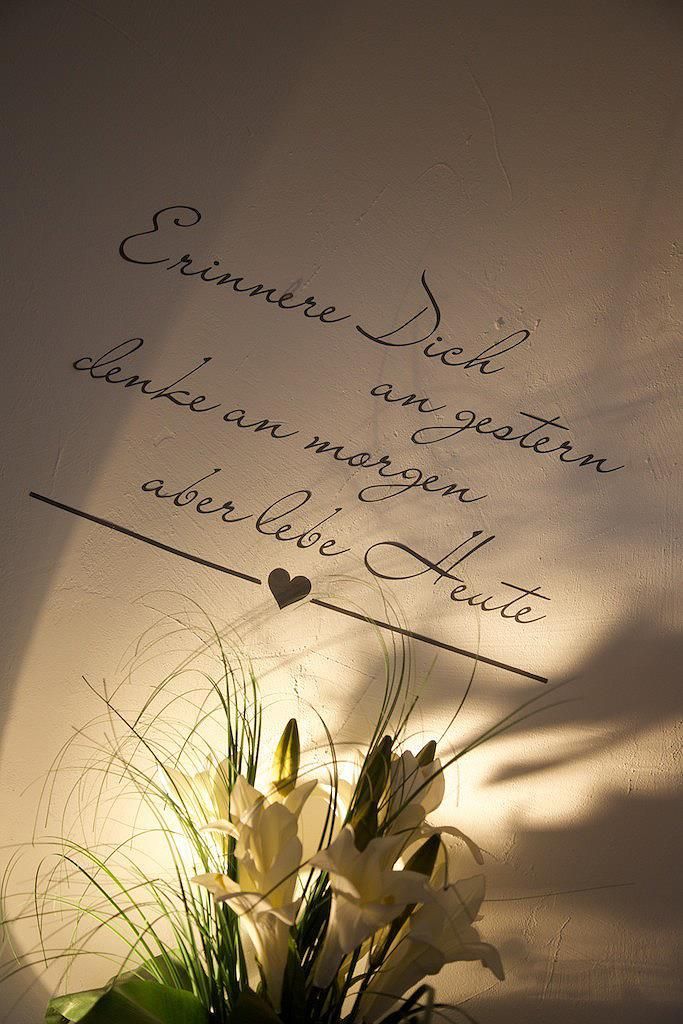 Erinnere Dich
an gestern
denke an morgen
aber lebe Heute